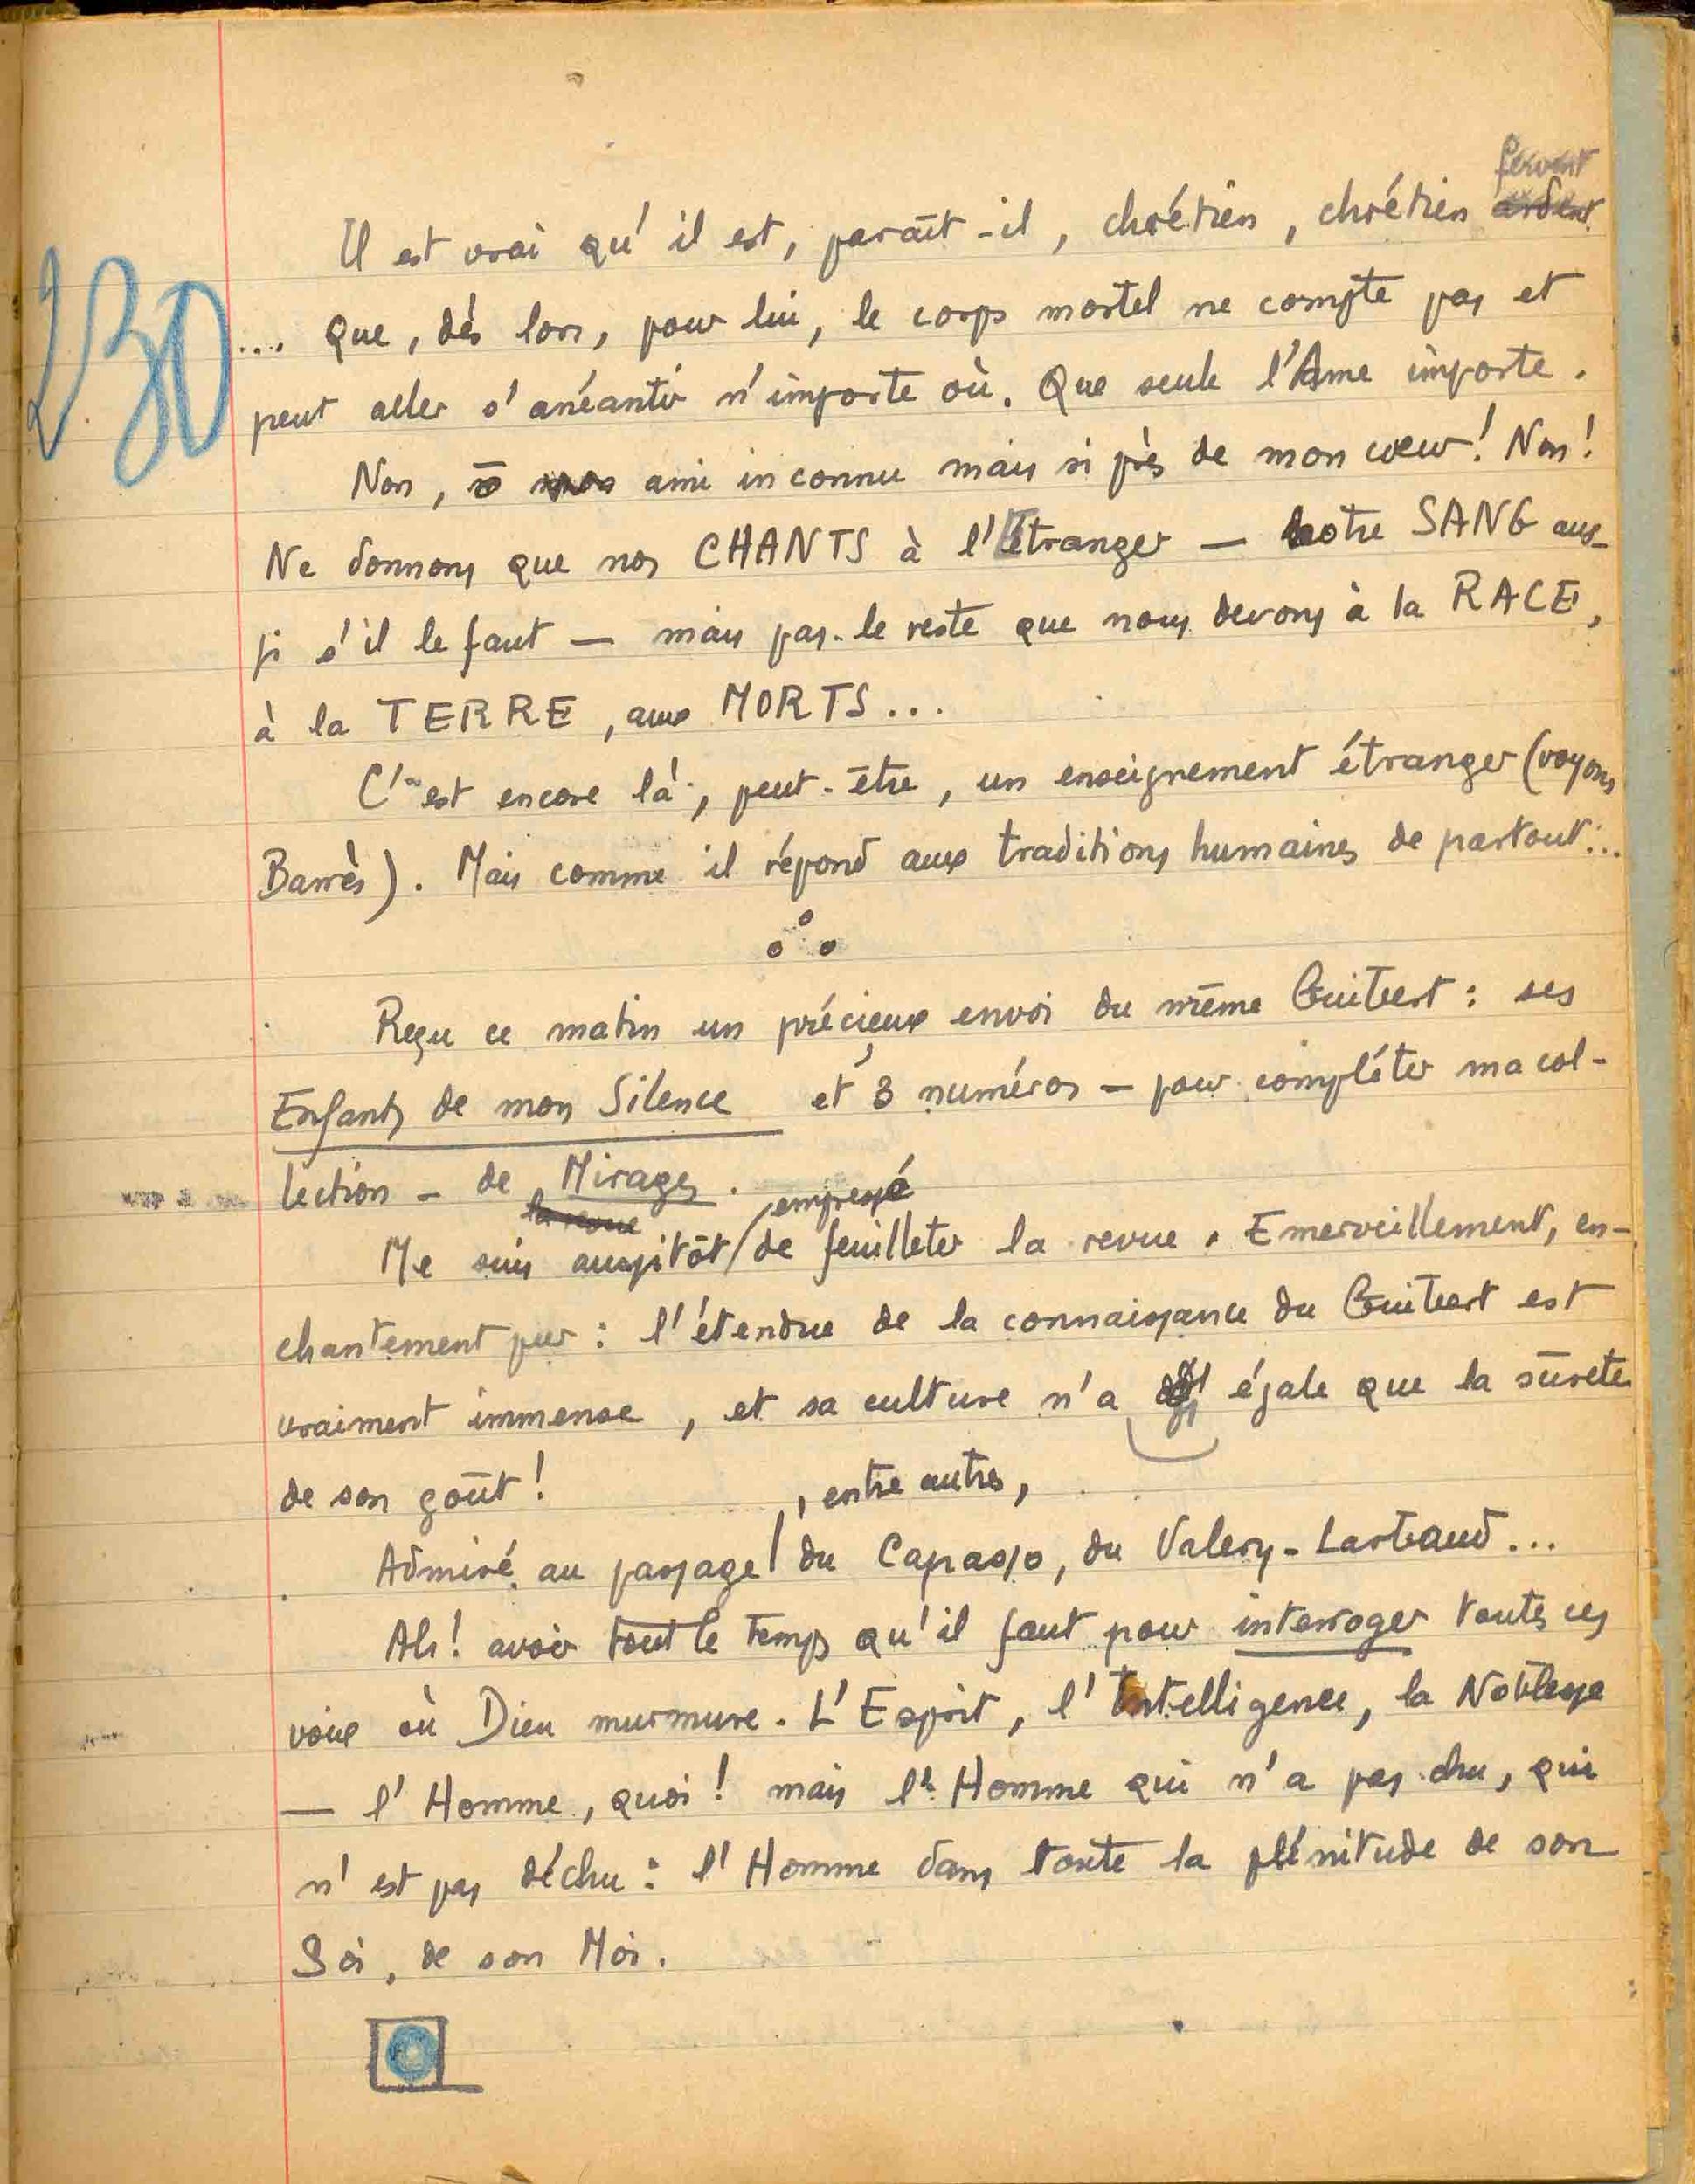 230
fervent
Il est vrai qu'il est, paraît-il, chrétien, chrétien ardent
... Que, dès lors, pour lui, le corps mortel ne compte pas et
peut aller s'anéantir n'importe où. Que seule l'Ame importe.
Non, ô mon ami inconnu mais si près de mon cœur! Non!
Ne donnons que nos CHANTS à l'étranger — notre SANG aus-
si s'il le faut — mais pas le reste que nous devons à la RACE,
à la TERRE, aux MORTS...
C'est encore là, peut-être, un enseignement étranger (voyons
Barrès). Mais comme il répond aux traditions humaines de partout...
Reçu ce matin un précieux envoi du même Guibert: ses
Enfants de mon Silence et 3 numéros — pour compléter ma col-
lection — de Mirages.
la revue empressé
Me suis aussitôt / de feuilleter la revue. Emerveillement, en-
chantement pur: l'étendue de la connaissance du Guibert est
vraiment immense, et sa culture n'a égale que la sûreté
de son goût!
, entre autres,
Admiré au passage du Capasso, du Valery-Larbaud...
Ah! avoir tout le temps qu'il faut pour interroger toutes ces
voix où Dieu murmure. L'Esprit, l'Intelligence, la Noblesse
— l'Homme, quoi! mais l'Homme qui n'a pas chu, qui
n'est pas déchu: l'Homme dans toute la plénitude de son
Soi, de son Moi.